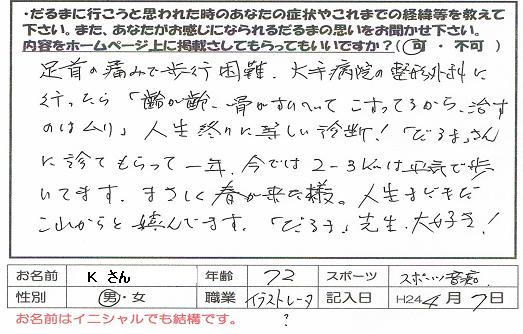 ・だるまに行こうと思われた時のあなたの症状やこれまでの経緯等を教えて
下さい。また、あなたがお感じになられるだるまの思いをお聞かせ下さい。
内容をホームページ上に掲載さしてもらってもいいですか？（可 ・ 不可 ）
足首の痛みで歩行困難．大手病院の整形外科に
行ったら「齢が齢、骨がすりへって こすってるから、治す
のはムリ」人生終りに等しい診断！「だるま」さん
に診てもらって一年．今では2-3Kmは平気で歩
いてます．まさしく春が来た様。人生まだまだ
これからと嬉んでます．「だるま」先生．大好き！
お名前 K さん 年齢 72 スポーツ スポーツ音痴
性別 男・女 職業 イラストレータ 記入日 H24 4月7日
お名前はイニシャルでも結構です。 ?